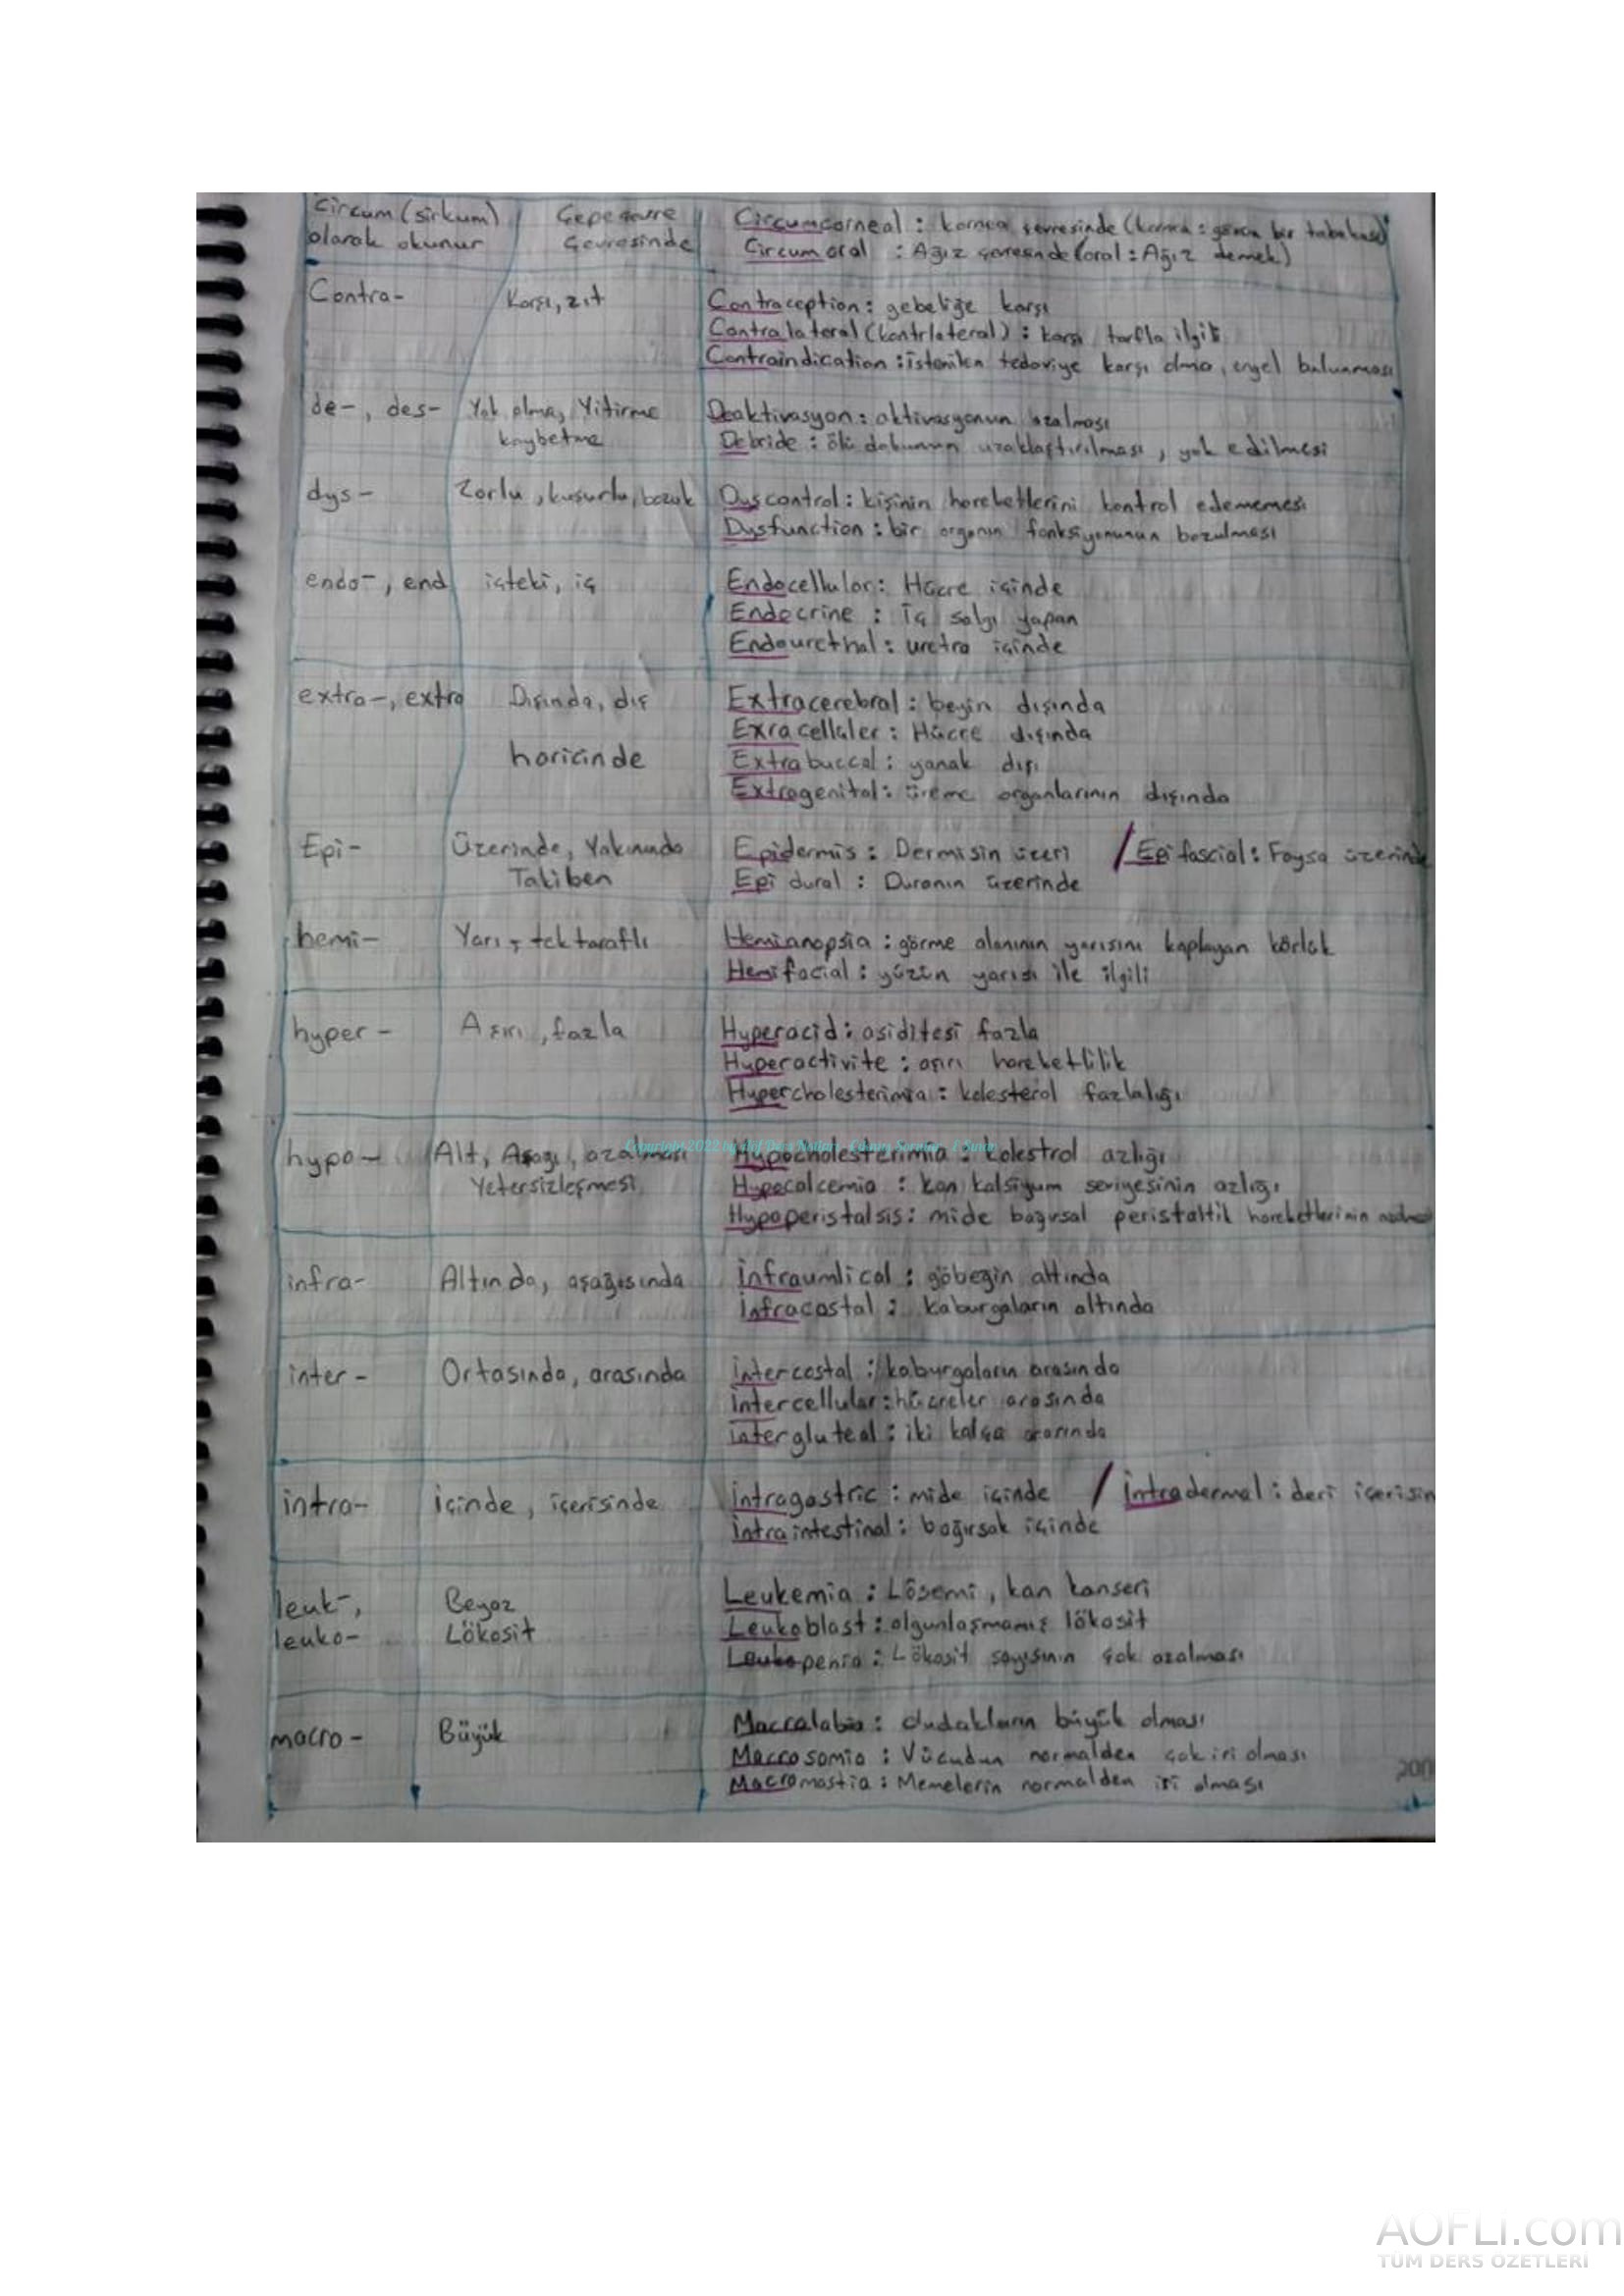 Circum (sirkum) Çepeçevre Circumcorneal : kornea çevresinde (kornea : gözün bir tabakası)
olarak okunur Çevresinde Circumoral : Ağız çevresinde (oral : Ağız demek)
Contra- Karşı, zıt Contraception : gebeliğe karşı
Contralateral (kontrlateral) : karşı tarfla ilgili
Contraindication : istenilen tedaviye karşı olma, engel bulunması
de-, des- Yok olma, Yitirme Deaktivasyon : aktivasyonun azalması
kaybetme Debride : ölü dokunun uzaklaştırılması, yok edilmesi
dys- Zorlu, kusurlu, bozuk Dyscontrol : kişinin hareketlerini kontrol edememesi
Dysfunction : bir organın fonksiyonunun bozulması
endo-, end içteki, iç Endocellular : Hücre içinde
Endocrine : İç salgı yapan
Endourethal : uretra içinde
extra-, extro Dışında, dış Extracerebral : beyin dışında
Exracelluler : Hücre dışında
haricinde Extrabuccal : yanak dışı
Extragenital : üreme organlarının dışında
Epi- Üzerinde, Yakınında Epidermis : Dermisin üzeri / Epifascial : Faysa üzerinde
Takiben Epidural : Duranın üzerinde
hemi- Yarı, tek taraflı Hemianopsia : görme alanının yarısını kaplayan körlük
Hemifacial : yüzün yarısı ile ilgili
hyper- Aşırı, fazla Hyperacid : asiditesi fazla
Hyperactivite : aşırı hareketlilik
Hypercholesterimia : kolesterol fazlalığı
Copyright 2022 by Aöf Ders Notları
hypo- Alt, Aşağı, azalması Hypocholesterimia : kolestrol azlığı
Yetersizleşmesi Hypocalcemia : kan kalsiyum seviyesinin azlığı
Hypoperistalsis : mide bağırsal peristaltik hareketlerinin
infra- Altında, aşağısında İnfraumlical : göbeğin altında
İnfracostal : kaburgaların altında
inter- Ortasında, arasında İntercostal : kaburgaların arasında
İntercellular : hücreler arasında
intergluteal : iki kalça arasında
intra- İçinde, içerisinde İntragastric : mide içinde / İntradermal : deri içerisin
İntraintestinal : bağırsak içinde
leuk-, Beyaz Leukemia : Lösemi, kan kanseri
leuko- Lökosit Leukoblast : olgunlaşmamış lökosit
Leukopenia : Lökosit sayısının çok azalması
macro- Büyük Macrolabia : dudakların büyük olması
Macrosomia : Vücudun normalden çok iri olması
Macromastia : Memelerin normalden iri olması
200
AOFLI.com
TÜM DERS ÖZETLERİ